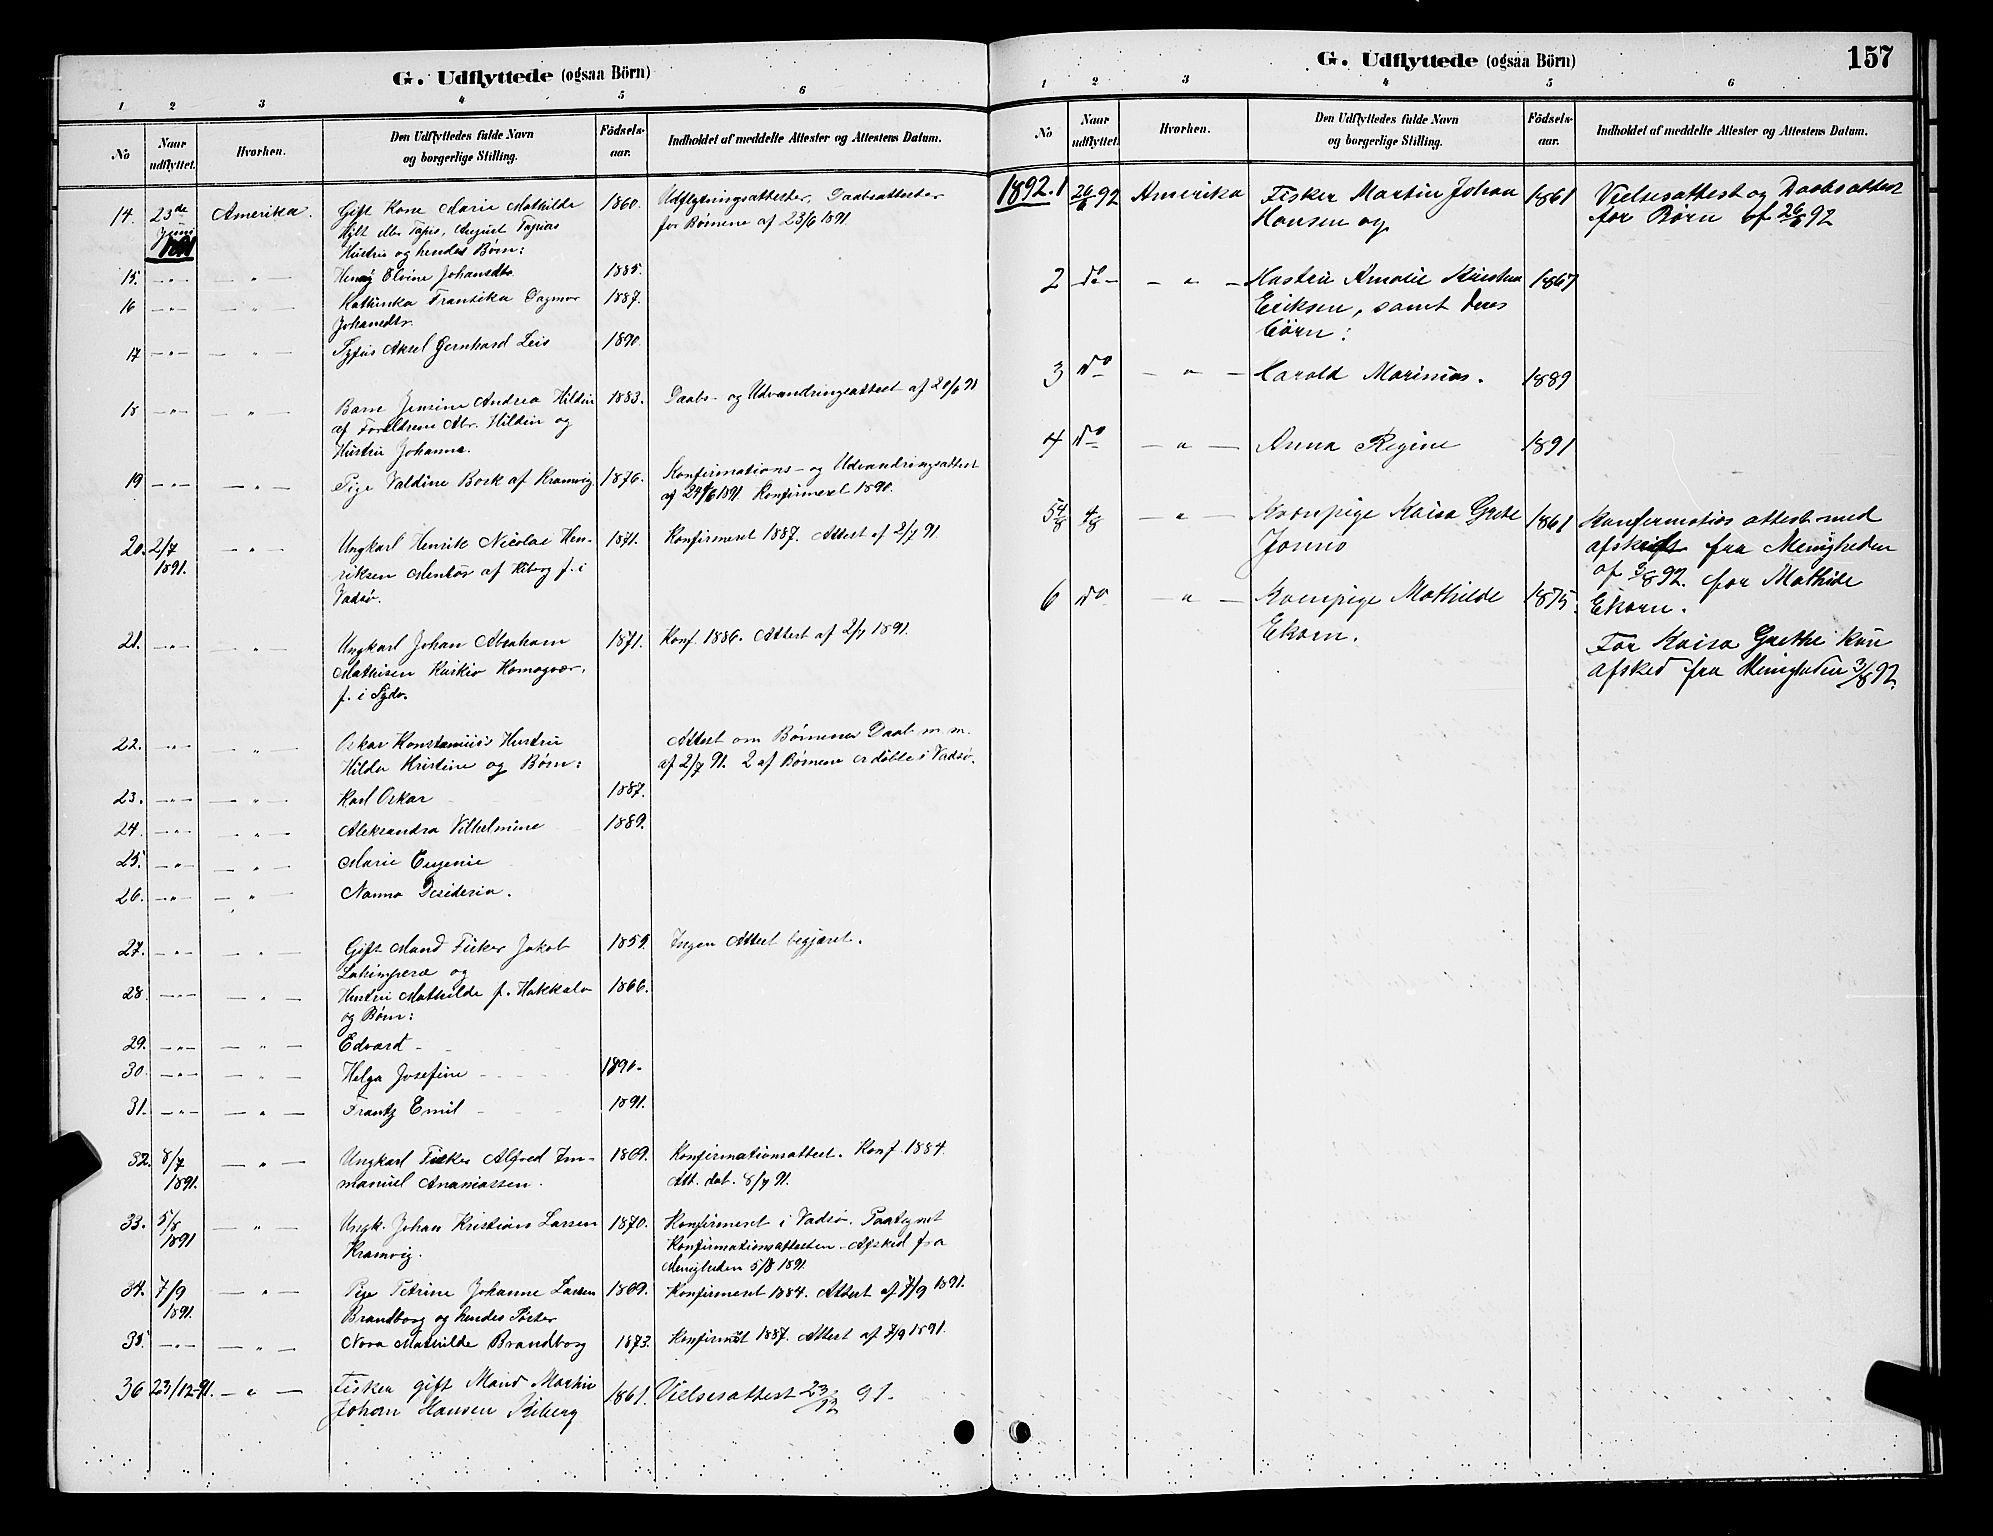 G. Udflyttede (ogsaa Börn)
1 2 3 4 5 6
No Naar udflyttet. Hvorhen. Den Udflyttedes fulde Navn og borgerlige Stilling. Födsels-aar. Indholdet af meddelte Attester og Attestens Datum.
14. 23de Juni 1891 Amerika. Gift Kone Marie Mathilde 1860. Udflytningsattester, Daabsattester
August Tapios for Børnene af 23/6 1891.
Hustru og hendes Børn:
15. — " — — " — Elvine Johansdtr. 1885.
16 — " — — " — Kathinka Fransika Dagmar 1887.
Johansdtr.
17 — " — — " — Aksel Gernhard Leis 1890.
18 — " — — " — Barn Jensine Andrea Hildin 1883. Daabs- og Udvandringsattest af 20/6 91
af Forældrene Abr. Hildin og
Hustru Johanna.
19 — " — — " — Pige Valdine Bork af Kramvig 1876. Konfirmations- og Udvandringsattest
af 24/6 1891. Konfirmeret 1890.
20. 2/7 1891. — " — Ungkarl Henrik Nicolai Hen- 1871. Konfirmeret 1887. Attest af 2/7 91.
riksen af Kiberg f. i
Vadsø.
21. — " — — " — Ungkarl Johan Abraham 1871. Konf. 1886. Attest af 2/7 1891.
Mathisen Homogvær,
f. i
22. — " — — " — Oskar Konstantius's Hustru Attest om Børnenes Daab m.m.
Hilda Kristine og Børn: af 2/7 91. 2 af Børnene er døbte i Vadsø.
23. — " — — " — Karl Oskar 1887.
24. — " — — " — Aleksandra Vilhelmine 1889.
25. — " — — " — Marie Eugenie
26. — " — — " — Nanna Desideria.
27. — " — — " — Gift Mand Fisker Jakob 1859. Ingen Attest begjæret.
Lahinperæ og
28. — " — — " — Hustru Mathilde f. Hakkala 1866.
og Børn:
29. — " — — " — Edvard
30. — " — — " — Helga Josefine 1890.
31. — " — — " — Frantz Emil 1891.
32. 8/7 1891. — " — Ungkarl Fisker Alfred Im- 1869. Konfirmationsattest. Konf. 1884.
manuel Ananiassen. Att. dat. 8/7 91.
33. 5/8 1891 — " — Ungk. Johan Kristian Larsen 1870. Konfirmeret i Vadsø. Paategnet
Kramvig. Konfirmationsattesten. Afsked fra
Menigheden 5/8 1891.
34. 7/9 1891. — " — Pige Petrine Johanne Larsen 1869. Konfirmeret 1884. Attest af 7/9 1891.
Brandborg og hendes Søster
35. — " — — " — Nora Mathilde Brandborg 1873. Konfirmret 1887. Attest af 7/9 1891.
36 23/12-91. — " — Fisker gift Mand Martin 1861. Vielsesattest 23/12 91.
Johan Hansen Kiberg
G. Udflyttede (ogsaa Börn) 157
1 2 3 4 5 6
No Naar udflyttet. Hvorhen. Den Udflyttedes fulde Navn og borgerlige Stilling. Födsels-aar. Indholdet af meddelte Attester og Attestens Datum.
1892. 1 92 Amerika Fisker Martin Johan 1861 Vielsesattest og Daabsattest
Hansen og for Børn 92
2 do — " — Hustru Amalie Kirstine 1867
Eriksen, samt deres
børn:
3 do — " — Harald Marinius. 1889
4 do — " — Anna Regine 1891
5 4/8 — " — Kvænpige Kaisa Grete 1861 Konfirmations attest med
Jonno afskift fra Menigheden
af 3/8 92. for Mathilde
6 do — " — Kvænpige Mathilde 1875. Ekorn.
Ekorn.
For Kaisa Grethe kun
afsked fra Menigheden 3/8 92.